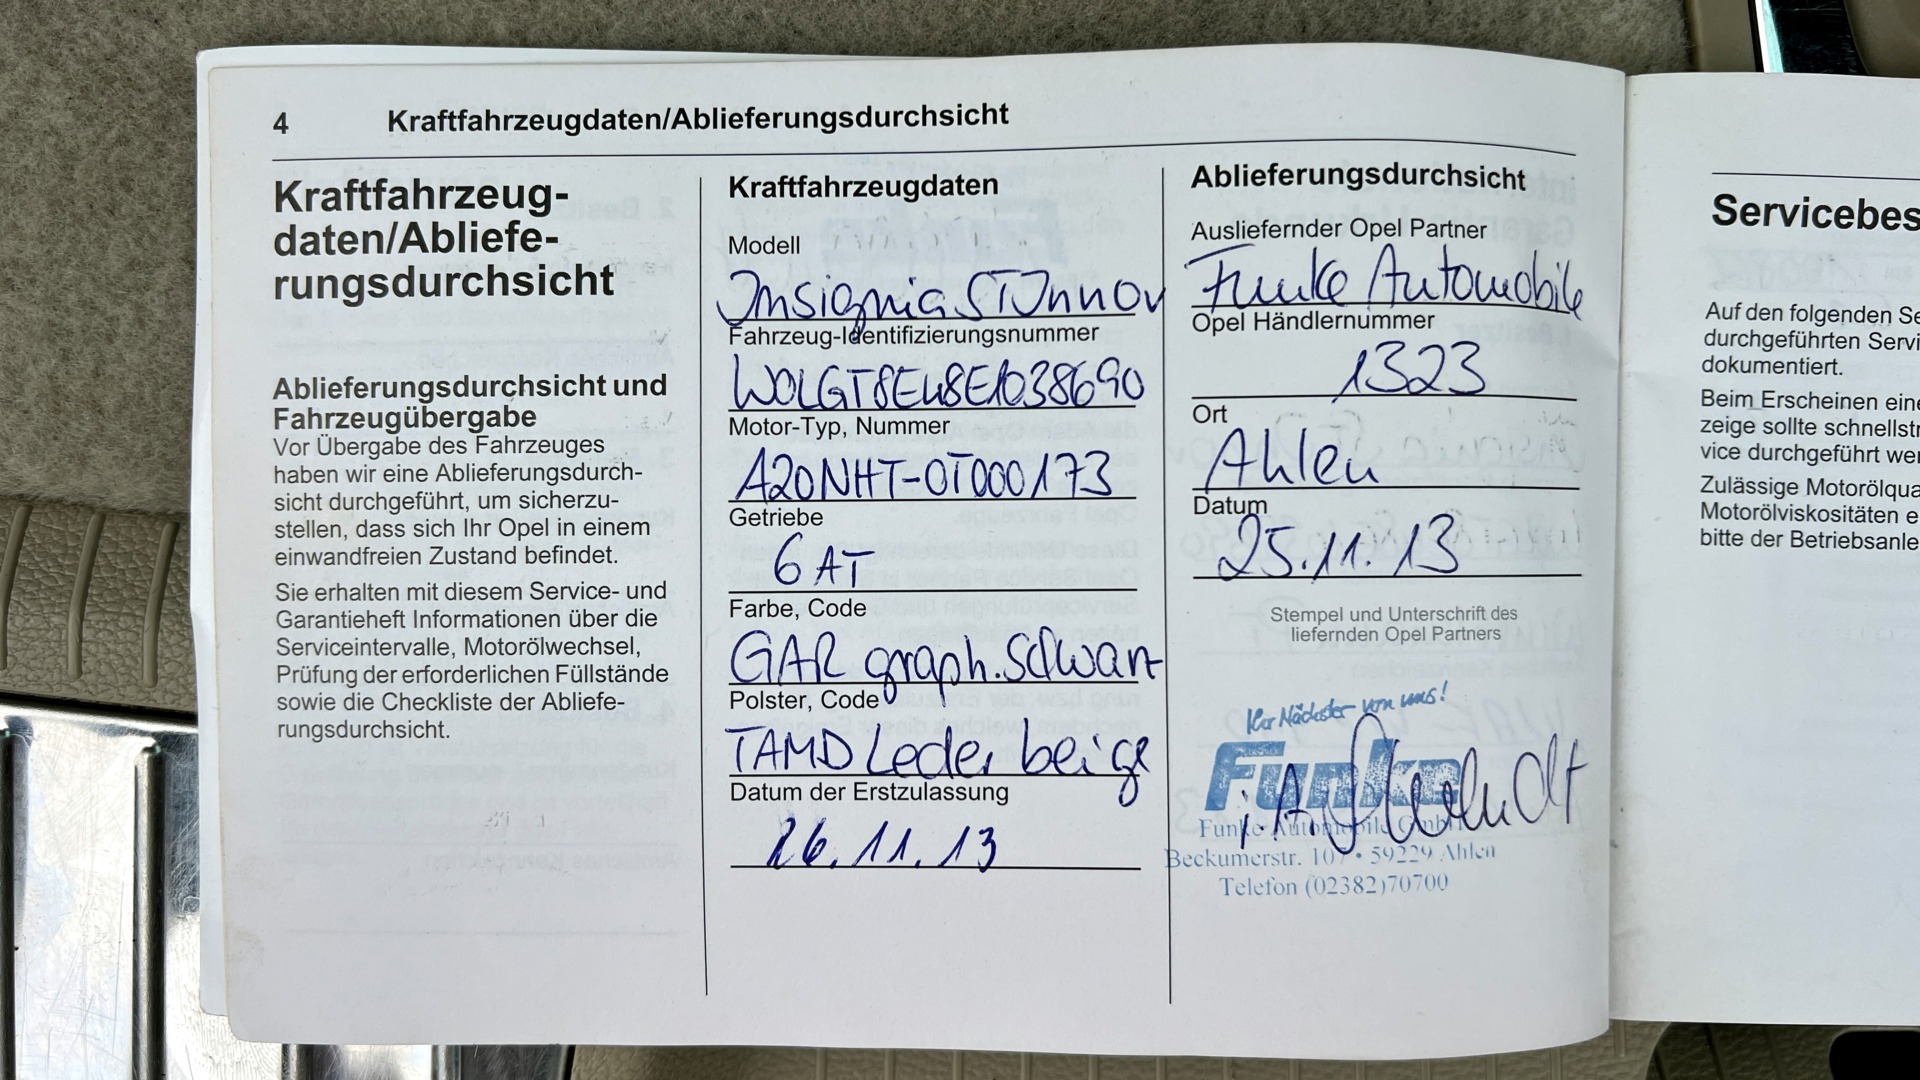 4 Kraftfahrzeugdaten/Ablieferungsdurchsicht
Kraftfahrzeug-
daten/Abliefe-
rungsdurchsicht
Ablieferungsdurchsicht und
Fahrzeugübergabe
Vor Übergabe des Fahrzeuges
haben wir eine Ablieferungsdurch-
sicht durchgeführt, um sicherzu-
stellen, dass sich Ihr Opel in einem
einwandfreien Zustand befindet.
Sie erhalten mit diesem Service- und
Garantieheft Informationen über die
Serviceintervalle, Motorölwechsel,
Prüfung der erforderlichen Füllstände
sowie die Checkliste der Abliefe-
rungsdurchsicht.
Kraftfahrzeugdaten
Modell
Insignia ST Innov
Fahrzeug-Identifizierungsnummer
W0LGT8EW8E1038690
Motor-Typ, Nummer
A20NHT-0T000173
Getriebe
6 AT
Farbe, Code
GAR graph.schwarz
Polster, Code
TAMD Leder beige
Datum der Erstzulassung
26.11.13
Ablieferungsdurchsicht
Ausliefernder Opel Partner
Funke Automobile
Opel Händlernummer
1323
Ort
Ahlen
Datum
25.11.13
Stempel und Unterschrift des
liefernden Opel Partners
Nächster von uns!
Funke
i.A.
Funke Automobile GmbH
Beckumerstr. 107 • 59229 Ahlen
Telefon (02382)70700
Servicebes
Auf den folgenden Se
durchgeführten Servi
dokumentiert.
Beim Erscheinen eine
zeige sollte schnellst
vice durchgeführt wer
Zulässige Motorölqua
Motorölviskositäten e
bitte der Betriebsanle